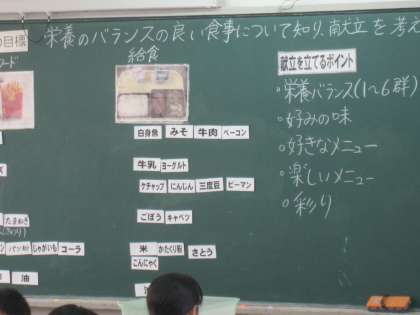 の目標
栄養のバランスの良い食事について知り、献立を考え
ード
給食
献立を立てるポイント
・栄養バランス(1~6群)
・好みの味
・好きなメニュー
・楽しいメニュー
・彩り
白身魚 みそ 牛肉 ベーコン
牛乳 ヨーグルト
ケチャップ にんじん 三度豆 ピーマン
ごぼう キャベツ
たまねぎ
じゃがいも コーラ
米 かたくり粉 さとう
こんにゃく
油